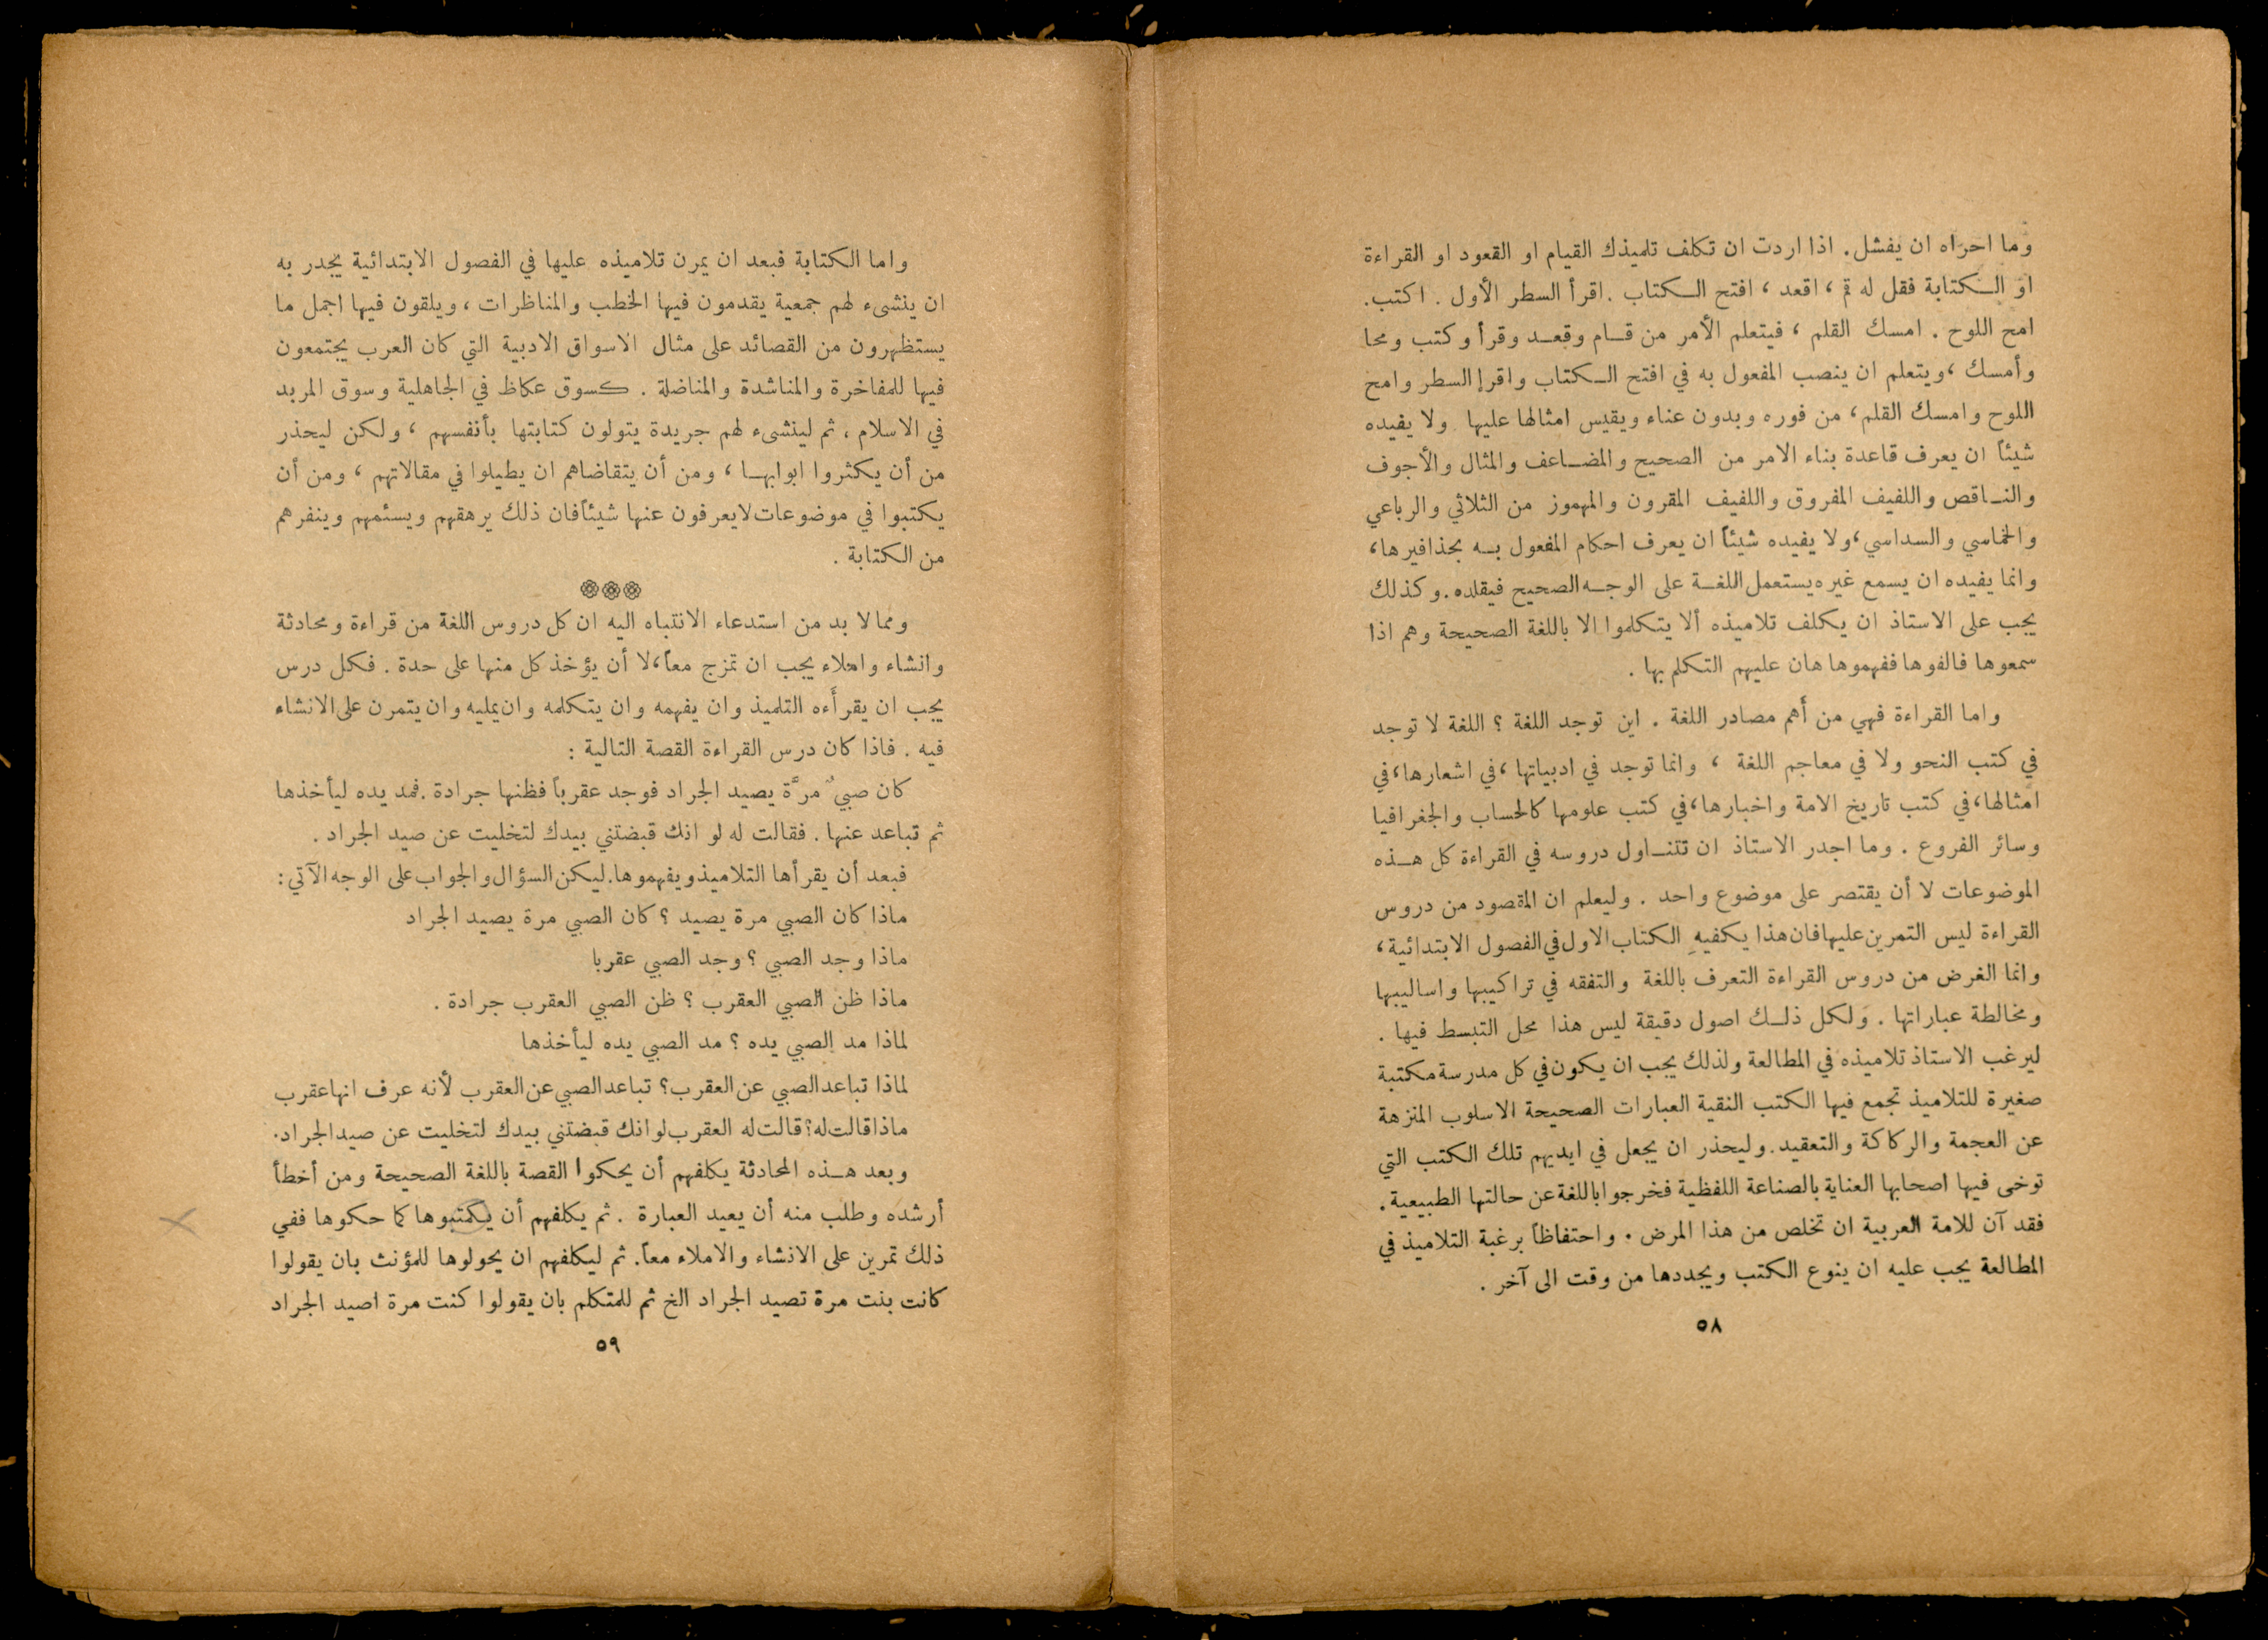 وما احراه ان يفشل. اذا اردت ان تكلف تلميذك القيام او القعود او القراءة
او الكتابة فقل له قم ، اقعد ، افتح الكتاب . اقرأ السطر الأول . اكتب.
امح اللوح . امسك القلم ، فيتعلم الأمر من قام وقعد وقرأ وكتب ومحا
وأمسك ، ويتعلم ان ينصب المفعول به في افتح الكتاب واقرإ السطر وامح
اللوح وامسك القلم، من فوره وبدون عناء ويقيس امثالها عليها ولا يفيده
شيئاً ان يعرف قاعدة بناء الامر من الصحيح والمضاعف والمثال والأجوف
والناقص واللفيف المفروق واللفيف المقرون والمهموز من الثلاثي والرباعي
والخماسي والسداسي، ولا يفيده شيئاً ان يعرف احكام المفعول به بحذافيرها،
وانما يفيده ان يسمع غيره يستعمل اللغة على الوجه الصحيح فيقلده. وكذلك
يجب على الاستاذ ان يكلف تلاميذه ألا يتكلموا الا باللغة الصحيحة وهم اذا
سمعوها فالفوها ففهموها هان عليهم التكلم بها .
واما القراءة فهي من أهم مصادر اللغة . اين توجد اللغة ؟ اللغة لا توجد
في كتب النحو ولا في معاجم اللغة ، وانما توجد في ادبياتها ، في اشعارها، في
امثالها، في كتب تاريخ الامة واخبارها، في كتب علومها كالحساب والجغرافيا
وسائر الفروع . وما اجدر الاستاذ ان تتناول دروسه في القراءة كل هذه
الموضوعات لا أن يقتصر على موضوع واحد . وليعلم ان المقصود من دروس
القراءة ليس التمرين عليها فان هذا يكفيهِ الكتاب الاول في الفصول الابتدائية ،
وانما الغرض من دروس القراءة التعرف باللغة والتفقه في تراكيبها واساليبها
ومخالطة عباراتها . ولكل ذلك اصول دقيقة ليس هذا محل التبسط فيها .
ليرغب الاستاذ تلاميذه في المطالعة ولذلك يجب ان يكون في كل مدرسة مكتبة
صغيرة للتلاميذ تجمع فيها الكتب النقية العبارات الصحيحة الاسلوب المنزهة
عن العجمة والركاكة والتعقيد. وليحذر ان يجعل في ايديهم تلك الكتب التي
توخى فيها اصحابها العناية بالصناعة اللفظية فخرجوا باللغة عن حالتها الطبيعية .
فقد آن للامة العربية ان تخلص من هذا المرض . واحتفاظاً برغبة التلاميذ في
المطالعة يجب عليه ان ينوع الكتب ويجددها من وقت الى آخر .
٥٨
واما الكتابة فبعد ان يمرن تلاميذه عليها في الفصول الابتدائية يجدر به
ان ينشىء لهم جمعية يقدمون فيها الخطب والمناظرات ، ويلقون فيها اجمل ما
يستظهرون من القصائد على مثال الاسواق الادبية التي كان العرب يجتمعون
فيها للمفاخرة والمناشدة والمناضلة . كسوق عكاظ في الجاهلية وسوق المربد
في الاسلام ، ثم لينشىء لهم جريدة يتولون كتابتها بأنفسهم ، ولكن ليحذر
من أن يكثروا ابوابها ، ومن أن يتقاضاهم ان يطيلوا في مقالاتهم ، ومن أن
يكتبوا في موضوعات لا يعرفون عنها شيئاً فان ذلك يرهقهم ويسئمهم وينفرهم
من الكتابة .
ومما لا بد من استدعاء الانتباه اليه ان كل دروس اللغة من قراءة ومحادثة
وانشاء واملاء يجب ان تمزج معاً، لا أن يؤخذ كل منها على حدة . فكل درس
يجب ان يقرأَه التلميذ وان يفهمه وان يتكلمه وان يمليه وان يتمرن على الانشاء
فيه . فاذا كان درس القراءة القصة التالية :
كان صبيٌ مرَّة يصيد الجراد فوجد عقرباً فظنها جرادة . فمد يده ليأخذها
ثم تباعد عنها . فقالت له لو انك قبضتني بيدك لتخليت عن صيد الجراد .
فبعد أن يقرأها التلاميذ ويفهموها. ليكن السؤال والجواب على الوجه الآتي :
ماذا كان الصبي مرة يصيد ؟ كان الصبي مرة يصيد الجراد
ماذا وجد الصبي ؟ وجد الصبي عقربا
ماذا ظن الصبي العقرب ؟ ظن الصبي العقرب جرادة .
لماذا مد الصبي يده ؟ مد الصبي يده ليأخذها
لماذا تباعد الصبي عن العقرب؟ تباعد الصبي عن العقرب لأنه عرف انها عقرب
ماذا قالت له؟ قالت له العقرب لو انك قبضتني بيدك لتخليت عن صيد الجراد.
وبعد هذه المحادثة يكلفهم أن يحكوا القصة باللغة الصحيحة ومن أخطأ
أرشده وطلب منه أن يعيد العبارة . ثم يكلفهم أن يكتبوها كما حكوها ففي
ذلك تمرين على الانشاء والاملاء معاً. ثم ليكلفهم ان يحولوها للمؤنث بان يقولوا
كانت بنت مرة تصيد الجراد الخ ثم للمتكلم بان يقولوا كنت مرة اصيد الجراد
٥٩